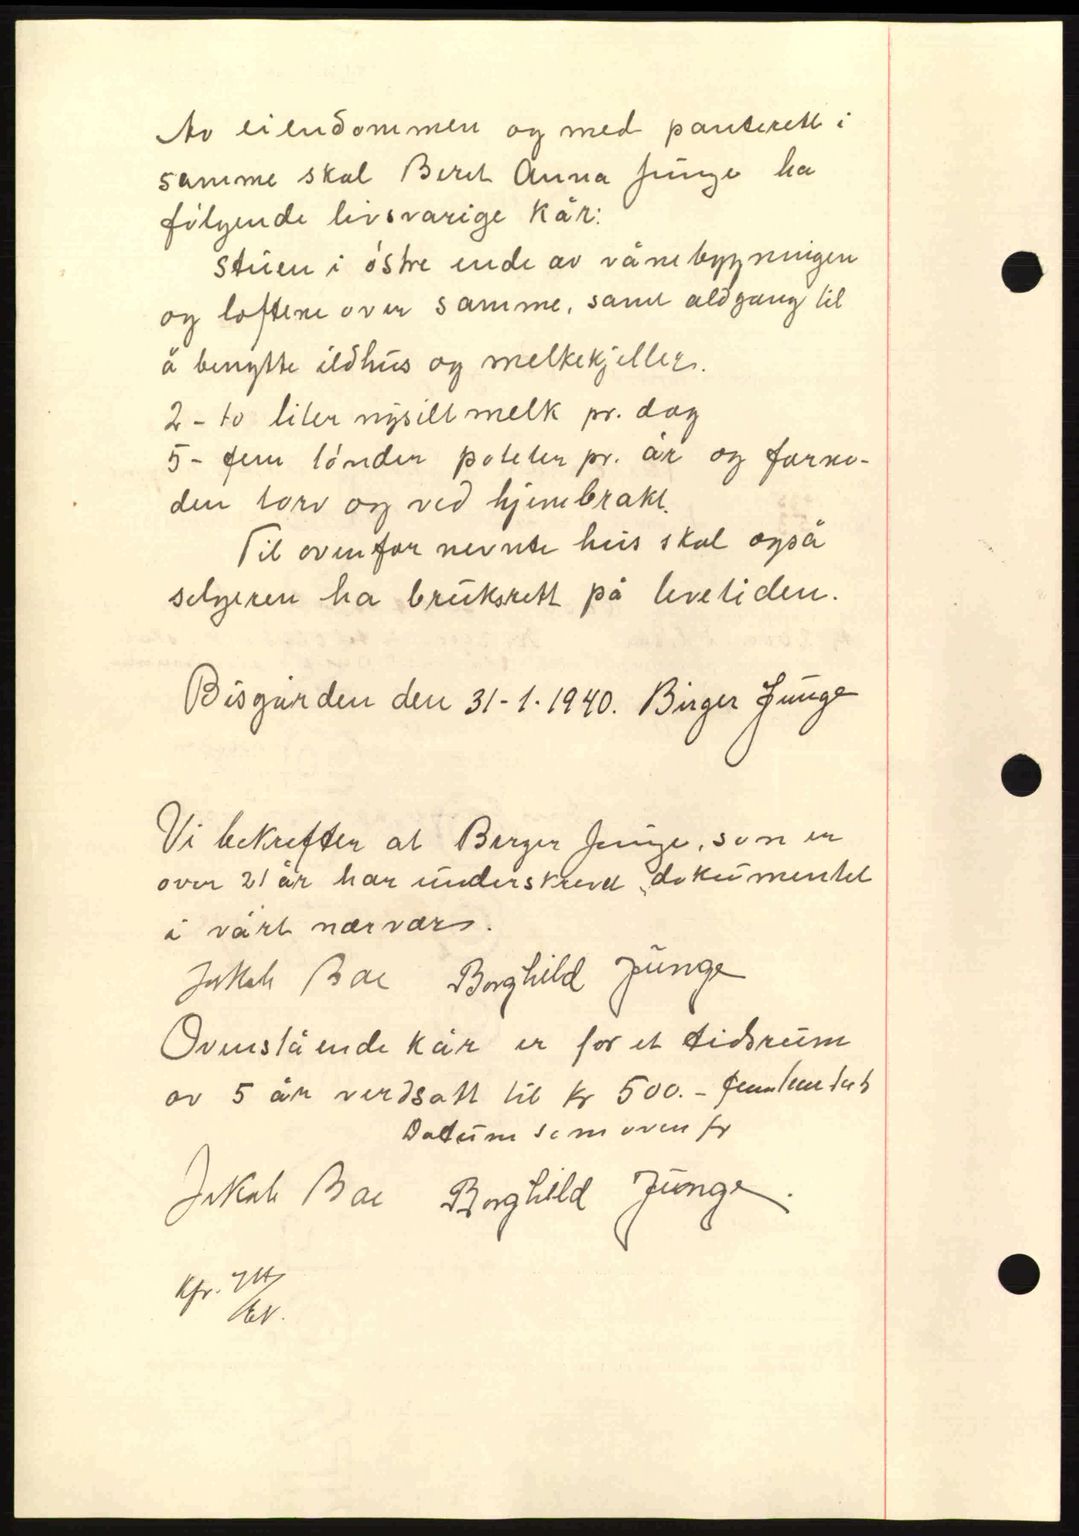 Av eiendommen og med panterett i
samme skal Beret Anna Junge ha
følgende livsvarige kår:
Stuen i østre ende av vånebygningen
og loftene over samme, samt aldgang til
å benytte ildhus og melkekjeller.
2 - to liter nysilt melk pr. dag
5 - fem tønder poteter pr. år og fornø-
den torv og ved hjembrakt.
Til ovenfor nevnte hus skal også
selgeren ha bruksrett på levetiden.
Bisgården den 31-1-1940. Birger Junge
Vi bekrefter at Birger Junge, som er
over 21 år har underskrevet dokumentet
i vårt nærvær.
Jakob Bae Borghild Junge
Ovenstående kår er for et tidsrum
av 5 år verdsatt til kr 500.- femhundred
Datum som oven fr
Jakob Bae Borghild Junge.
Kfr.